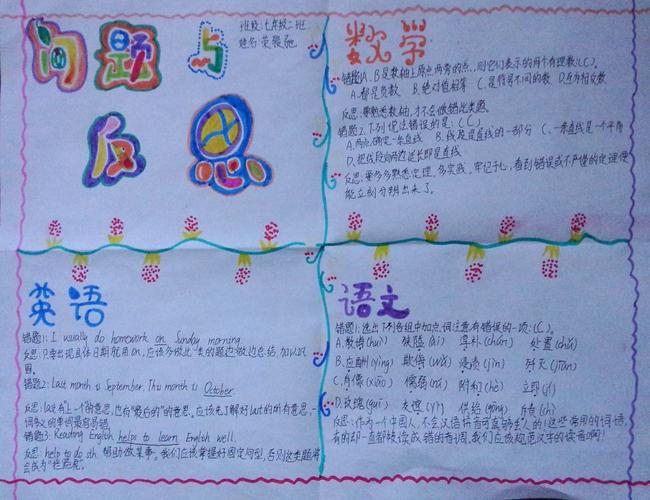 问题与
反思
班级:七年级二班
数学
错题1:A、B是数轴上原点两旁的点,则它们表示的两个有理数(C)。
A.都是负数 B.绝对值相等 C.是符号不同的数 D.互为相反数
反思:要熟悉数轴,才不会做错此类题
错题2.下列说法错误的是:(C)
A.两点确定一条直线 B.线段是直线的一部分 C.一条直线是一个平角
D.把线段向两边延长即是直线
反思:要多多熟悉定理,多实践,牢记于心,看到错误或不严谨的定理便
能立刻分辨出来了。
英语
错题1: I usually do homework on Sunday morning
反思:只要出现具体日期就用on,应该多做此类的题
错题2: Last month is September. This month is October
反思:last有"上一个"的意思,也有"最后的"的意思。应该先了解好last的所有意思,一
词多义的单词最容易错
错题3: Reading English helps to learn English well.
反思: help to do sth. 帮助做某事。我们应该掌握好固定句型,否则这类题将
会成为"拦路虎"
语文
错题1:选出下列各组中加点词注音有错误的一项:(C)。
A.教诲(huì) 狭隘(ài) 淳朴(chún) 处置(chǔ)
B.应酬(yìng) 欺侮(wǔ) 浸渍(jìn) 歼灭(jiān)
C.肖像(xiào) 懦弱 附和(hè) 立即(jí)
D.玫瑰(guī) 友谊(yì) 供给(gōng)
反思:作为一个中国人,不会汉语拼音可真够丢人的!这些常用的词语,
有的却一直都被读成错的音调,我们应该规范汉字的读音啊!